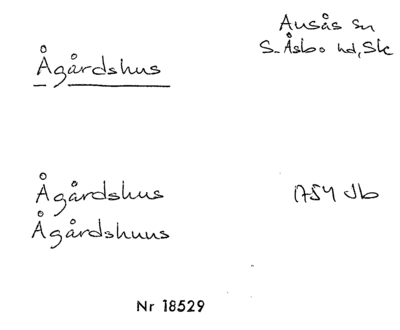 Ågårdshus
Ausås sn
S. Åsbo hd, Sk
Ågårdshus 1754 Jb
Ågårdshuus
Nr 18529